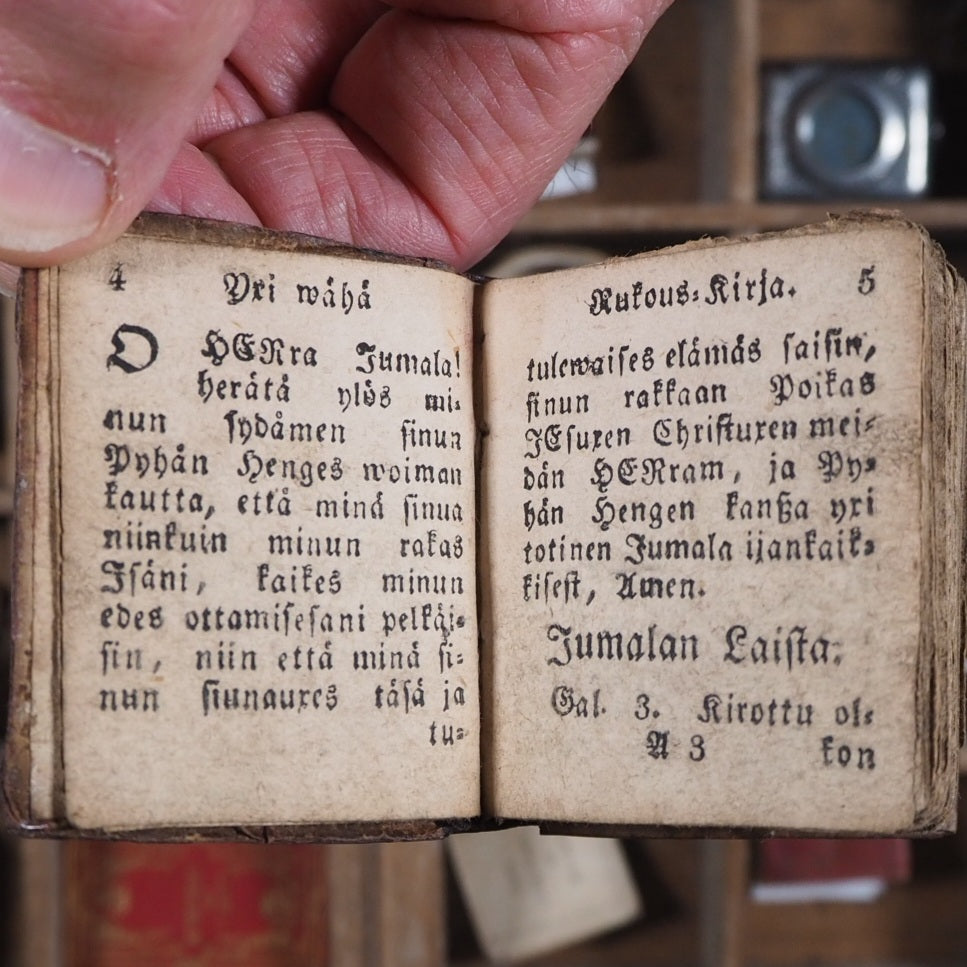 4 Yxi wähä
O HERra Jumala!
herätä ylös mi⸗
nun sydämen sinun
Pyhän Henges woiman
kautta, että minä sinua
niinkuin minun rakas
Isäni, kaikes minun
edes ottamisesani pelkäi⸗
sin, niin että minä si⸗
nun siunauxes täsä ja
tu⸗
Rukous⸗Kirja. 5
tulewaises elämäs saisin,
sinun rakkaan Poikas
JEsuxen Christuxen mei⸗
dän HERram, ja Py⸗
hän Hengen kanßa yxi
totinen Jumala ijankaik⸗
kisest, Amen.
Jumalan Laista.
Gal. 3. Kirottu ol⸗
A 3 kon